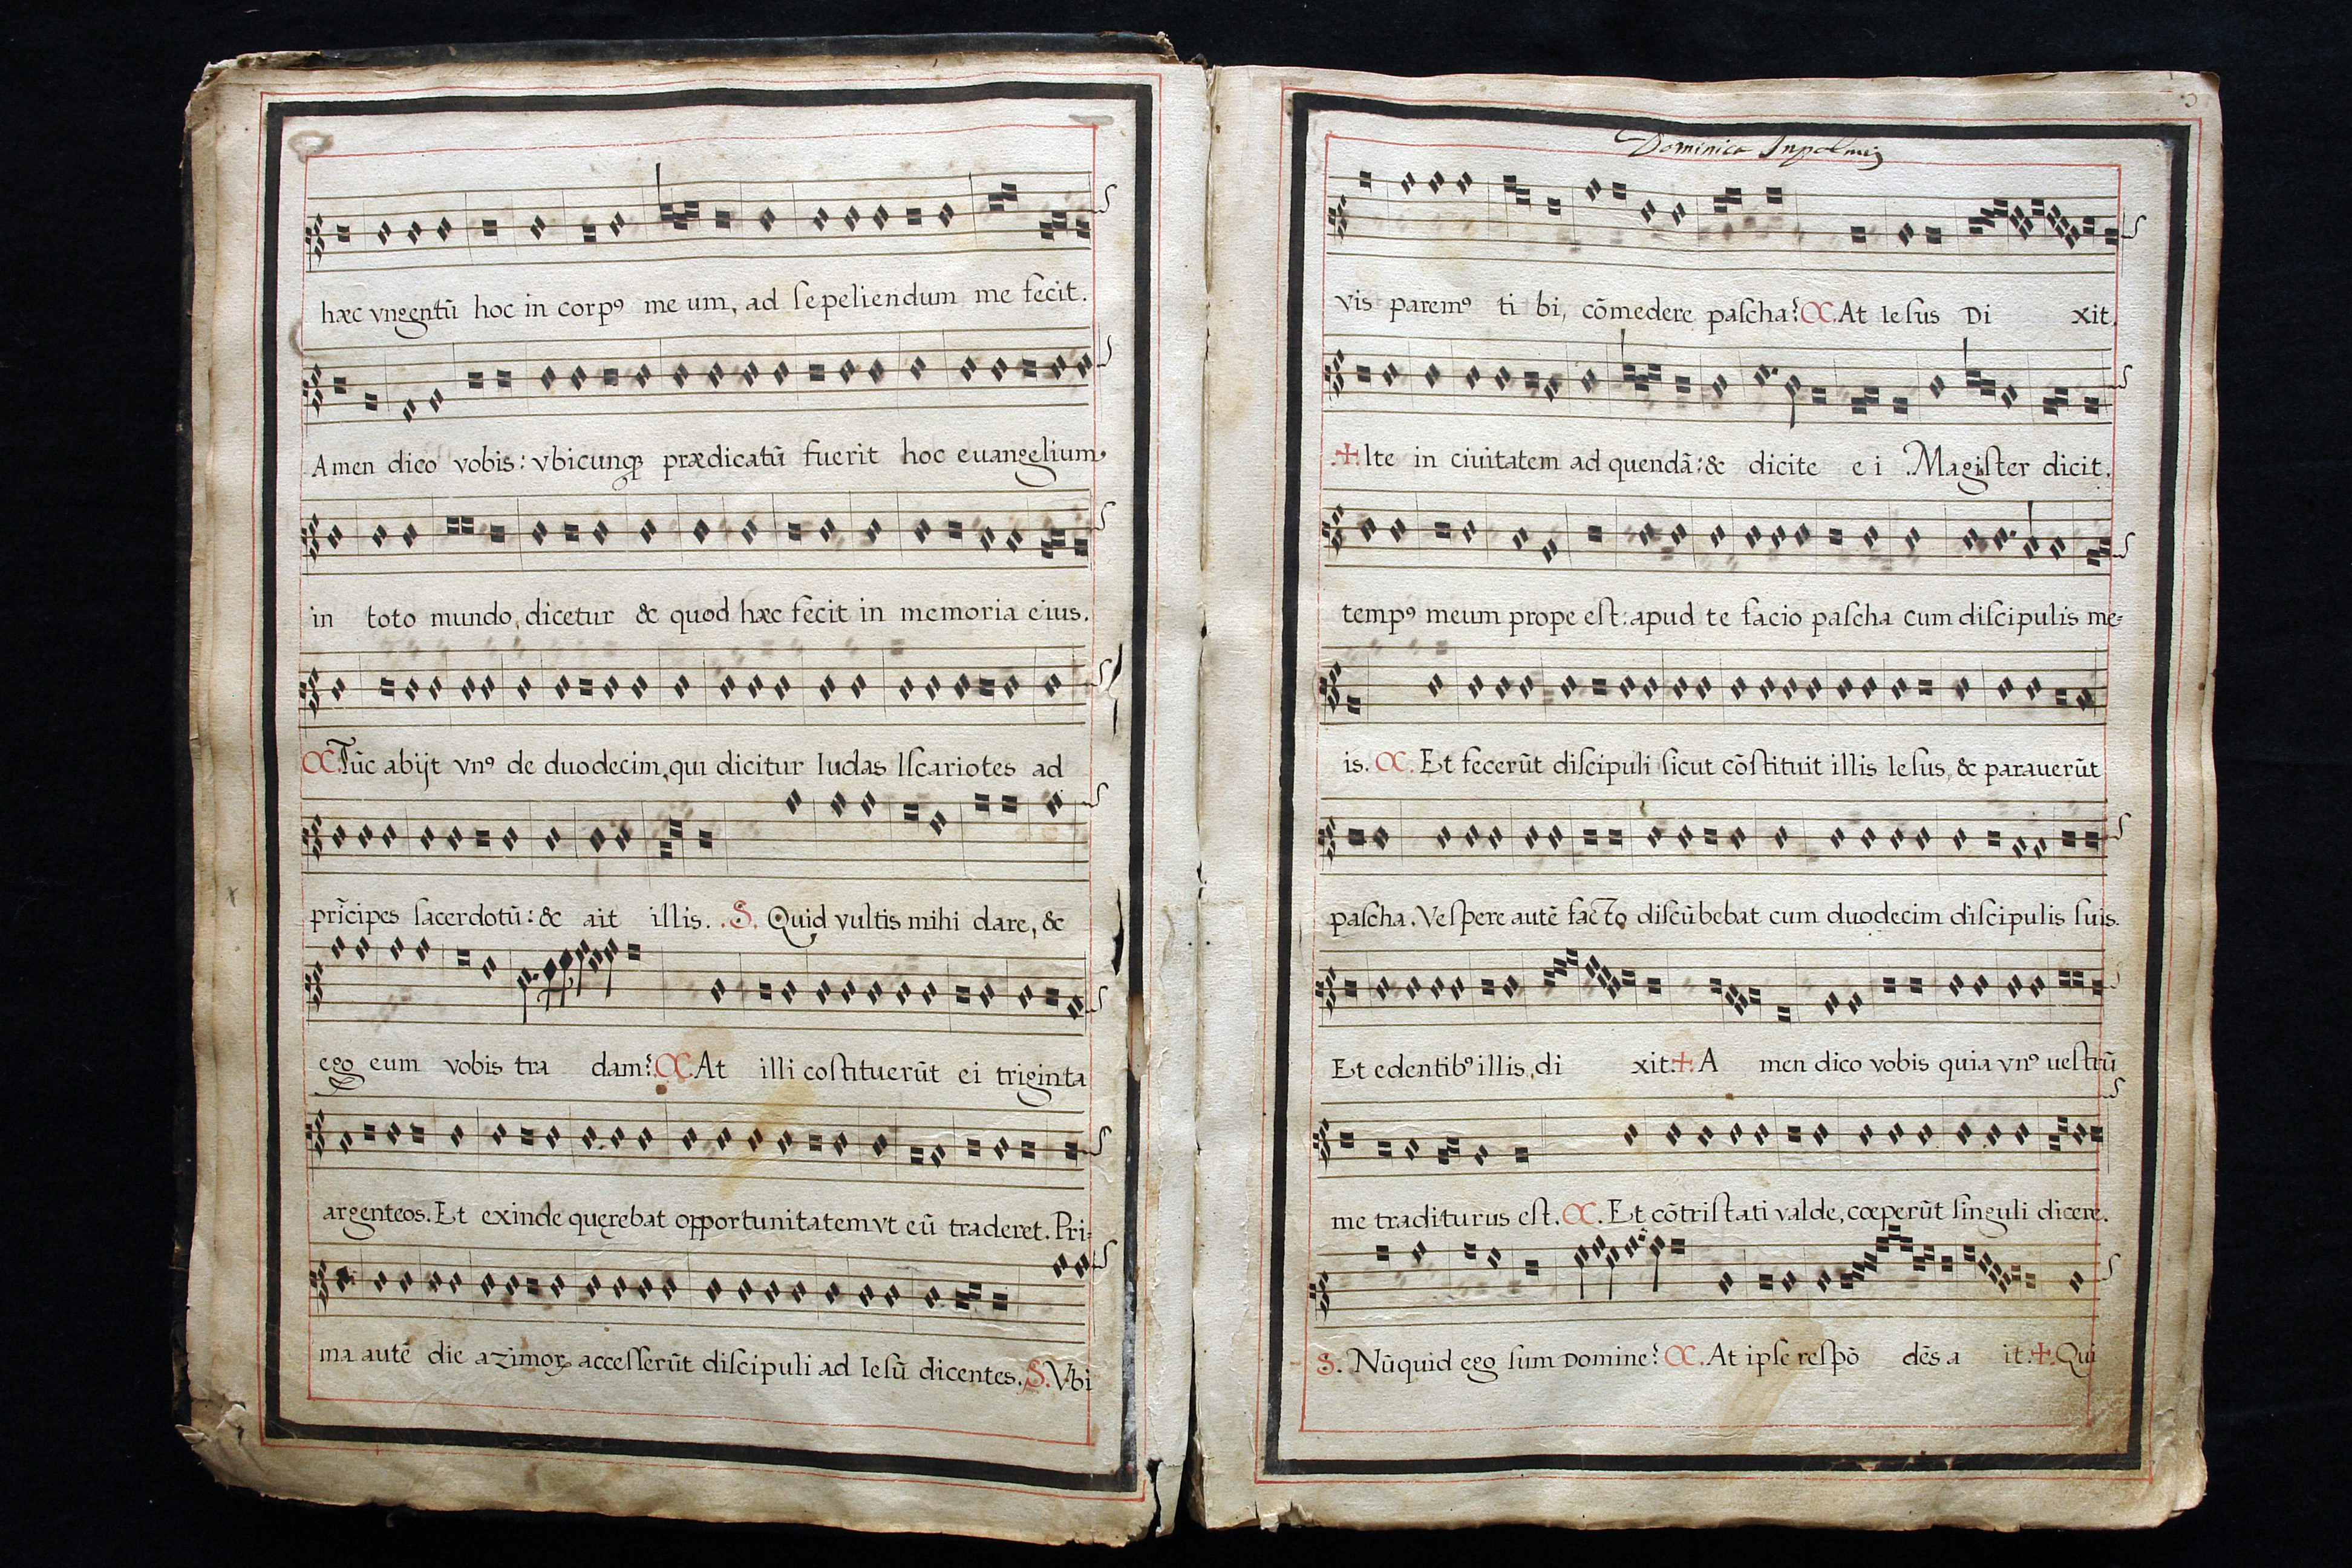 hæc vngentū hoc in corpꝰ me um, ad ſepeliendum me fecit.
Amen dico vobis: vbicunqꝫ prædicatū fuerit hoc euangelium
in toto mundo, dicetur & quod hæc fecit in memoria eius.
C. Tūc abijt vnꝰ de duodecim, qui dicitur Iudas Iſcariotes ad
prīcipes ſacerdotū: & ait illis. .S. Quid vultis mihi dare, &
ego eum vobis tra dam? C. At illi coſtituerūt ei triginta
argenteos. Et exinde quęrebat opportunitatem vt eū traderet. Pri-
ma autē die azimoꝝ acceſſerūt diſcipuli ad Ieſū dicentes. S. Vbi
Dominica Inpalmis
vis paremꝰ ti bi, cōmedere paſcha? C. At Ieſus Di xit.
.✠. Ite in ciuitatem ad quendā: & dicite e i .Magiſter dicit.
tempꝰ meum prope eſt: apud te facio paſcha cum diſcipulis me-
is. C. Et fecerūt diſcipuli ſicut cōſtituit illis Ieſus, & parauerūt
paſcha. Veſpere autē facto diſcūbebat cum duodecim diſcipulis ſuis.
Et edentibꝰ illis, di xit. ✠. A men dico vobis quia vnꝰ ueſtrū
me traditurus eſt. C. Et cōtriſtati valde, cœperūt ſinguli dicere.
S. Nūquid ego ſum Domine? C. At ipſe reſpō dēs a it. ✠. Qui